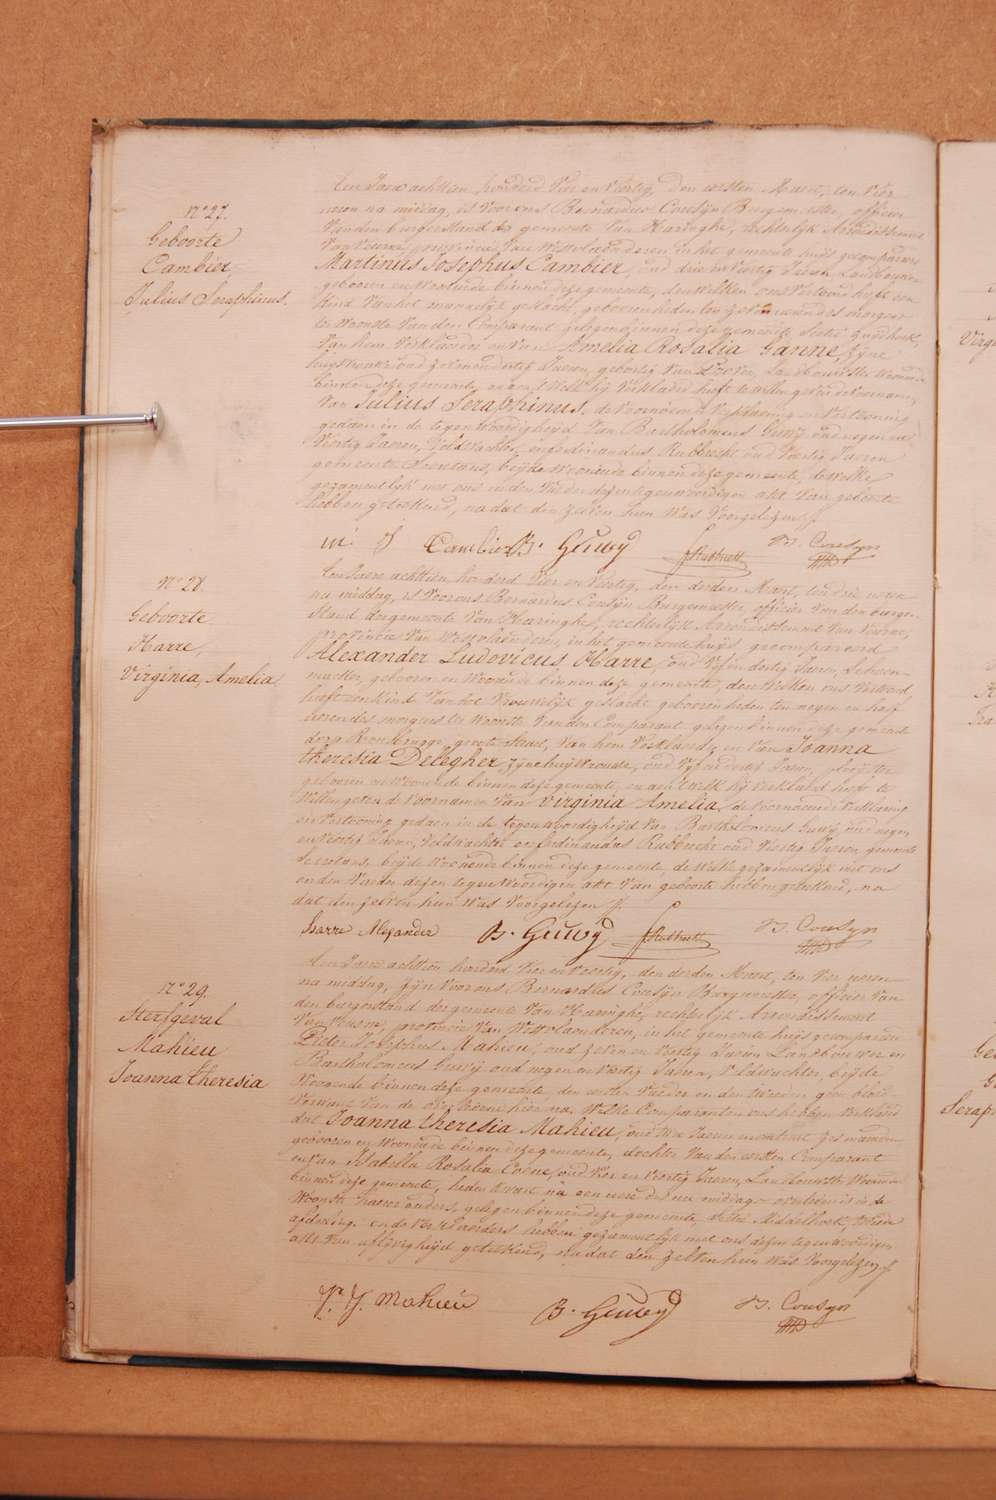 N° 27.
Geboorte
Cambier,
Julius Seraphinus.
Ten Jaere achttien honderd Vier en Veertig, den eersten Maart, ten Vier
uren na middag, is Voor ons Bernardus Cousÿn Burgemeester, officier
Van den burgerstand der gemeente Van Haringhe, rechterlyk Arrondissement
Van Veurne, provincie Van Westvlaenderen, in het gemeente huijs gecompareerd
Martinus Josephus Cambier, oud drie en Veertig Jaeren, Landbouwer
geboren en Woonende binnen deze gemeente, den welken ons Vertoond heeft een
Kind Van het mannelyk geslacht, geboren heden ten zeven uren des morgens
ter Woonste Van den Comparant gelegen binnen deze gemeente Sectie Zuydhoek,
Van hem Verklaerder en Van Amelia Rosalia Ganne, Zyne
huysvrouwe oud zeven en dertig Jaeren, geboortig Van Loover, Landbouwster Woonende
binnen deze gemeente, en aen 't Welk hy Verklaerd heeft te willen geven de voornamen
Van Julius Seraphinus, de Voornoemde Verklaering en Vertooning
gedaen in de tegenwoordigheyd Van Bartholomeus Geuwy oud negen en
Veertig Jaeren, Veldwachter, en Ferdinandus Rubbrecht oud Veertig Jaeren
gemeente Secretaris, beyde Woonende binnen deze gemeente, de Welke
gezamentlyk met ons en den Vader dezen tegenwoordigen akt Van geboorte
hebben geteekend, na dat den zelven hun Was Voorgelezen
M. J Cambier B. Geuwy F Rubbrecht B. Cousyn
N° 28.
Geboorte
Harre,
Virginia, Amelia
Ten Jaere achttien honderd Vier en Veertig, den derden Maart, ten drie uren
na middag, is Voor ons Bernardus Cousÿn Burgemeester, officier Van den burger-
stand der gemeente Van Haringhe, rechterlyk Arrondissement Van Veurne,
provincie Van Westvlaenderen, in het gemeente huijs gecompareerd
Alexander Ludovicus Harre, oud Vyf en dertig Jaeren, Schoen-
maeker, geboren en Woonende binnen deze gemeente, den Welken ons Vertoond
heeft een Kind Van het Vrouwelyk geslacht geboren heden ten negen en half
uren des morgens ter Woonste Van den Comparant gelegen binnen deze gemeente
dorp Rousbrugge, groote straet, Van hem Verklaerder en Van Joanna
theresia Delegher zyne huysvrouwe, oud Vyf en dertig Jaeren,
geboren en Woonende binnen deze gemeente, en aen 't Welk hy Verklaerd heeft te
Willen geven de Voornamen Van Virginia Amelia, de voornoemde Verklaering
en Vertooning gedaen in de tegenwoordigheyd Van Bartholomeus Geuwy oud negen
en Veertig Jaeren, Veldwachter en Ferdinandus Rubbrecht oud Veertig Jaeren, gemeente
secretaris, beyde Woonende binnen deze gemeente, de Welke gezamentlyk met ons
en den Vader dezen tegenwoordigen akt Van geboorte hebben geteekend, na
dat den zelven hun Was Voorgelezen
Harre Alexander B. Geuwy F Rubbrecht B. Cousyn
N° 29.
Sterfgeval
Mahieu
Joanna theresia
Ten Jaere achttien honderd Vier en Veertig, den derden Maart, ten Vier uren
na middag, zyn Voor ons Bernardus Cousyn Burgemeester, officier Van
den burgerstand der gemeente Van Haringhe, rechterlyk Arrondissement
Van Veurne, provincie Van Westvlaenderen, in het gemeente huijs gecompareerd
Pieter Josephus Mahieu, oud zeven en Veertig Jaeren Landbouwer en
Bartholomeus Geuwy oud negen en Veertig Jaeren, Veldwachter, beyde
Woonende binnen deze gemeente, den eersten Vader en den tweeden geen bloed-
Verwant Van de overleedene hier na, Welke Comparanten ons hebben Verklaerd
dat Joanna theresia Mahieu, oud twee Jaeren en ontrent zes maenden
geboren en Woonende binnen deze gemeente, dochter Van den eersten Comparant
en Van Isabella Rosalia Coene, oud Vier en Veertig Jaeren, Landbouwster Woonende
binnen deze gemeente, heden Kwart na een ure des namiddags overleden is in de
Woonste haerer ouders, gelegen binnen deze gemeente, Sectie Middelhoek, tweede
afdeeling en de Verklaerders hebben gezamentlyk met ons dezen tegenwoordigen
akt Van aflyvigheyd geteekend, na dat den zelven hun Was Voorgelezen
P. J. Mahieu B. Geuwy B. Cousyn
Virgi
Seraph